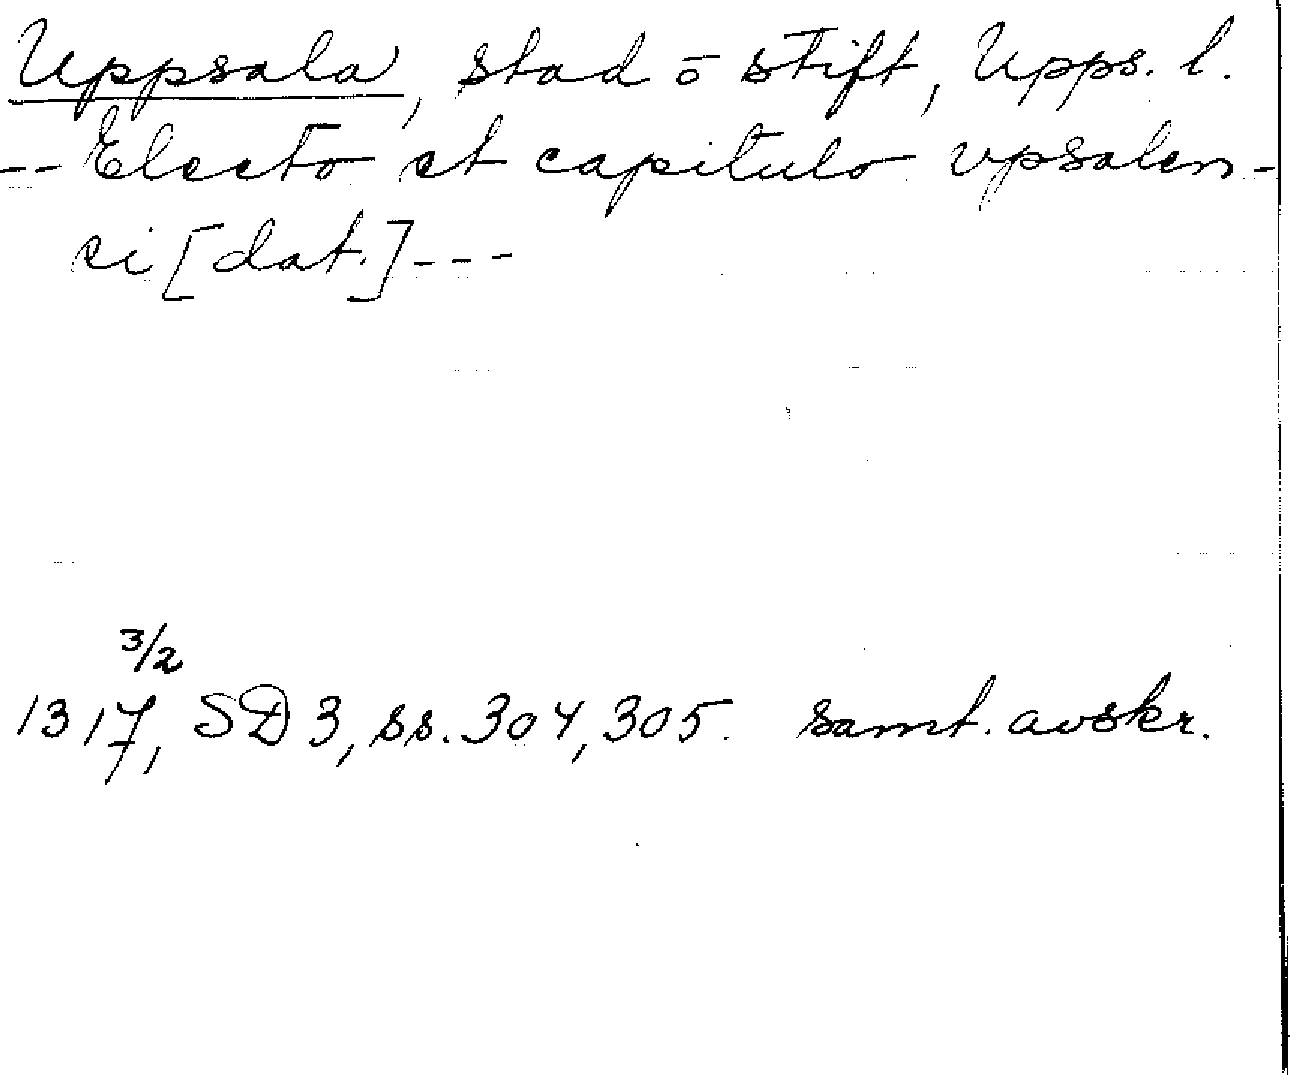 Uppsala, stad o stift, Upps. l.
-- Electo et capitulo vpsalen-
si [dat.] ---
3/2
1317, SD 3, ss. 304, 305. samt. avskr.